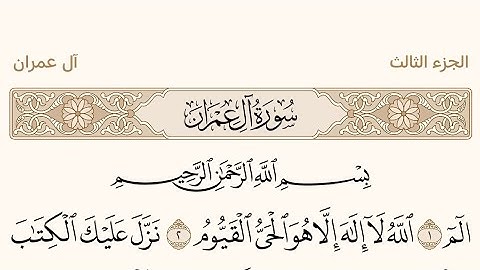 الجزء الثالث
آل عمران
سُورَةُ آلِ عِمْرَانَ
بِسْمِ ٱللَّهِ ٱلرَّحْمَٰنِ ٱلرَّحِيمِ
الٓمٓ ١ ٱللَّهُ لَآ إِلَٰهَ إِلَّا هُوَ ٱلْحَىُّ ٱلْقَيُّومُ ٢ نَزَّلَ عَلَيْكَ ٱلْكِتَٰبَ